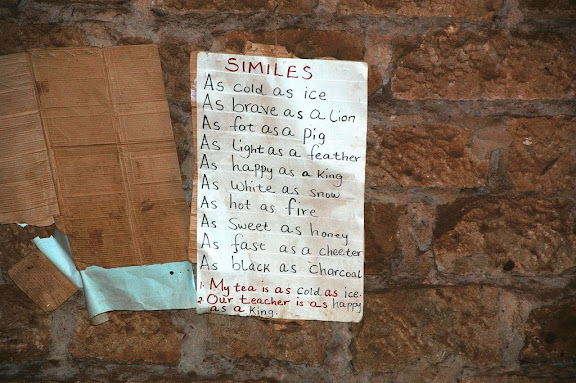 SIMILES
As cold as ice
As brave as a Lion
As fat as a pig
As Light as a feather
As happy as a King
As white as snow
As hot as fire
As Sweet as honey
As fast as a cheeter
As black as Charcoal
1. My tea is as cold as ice.
2. Our teacher is as happy
as a King.